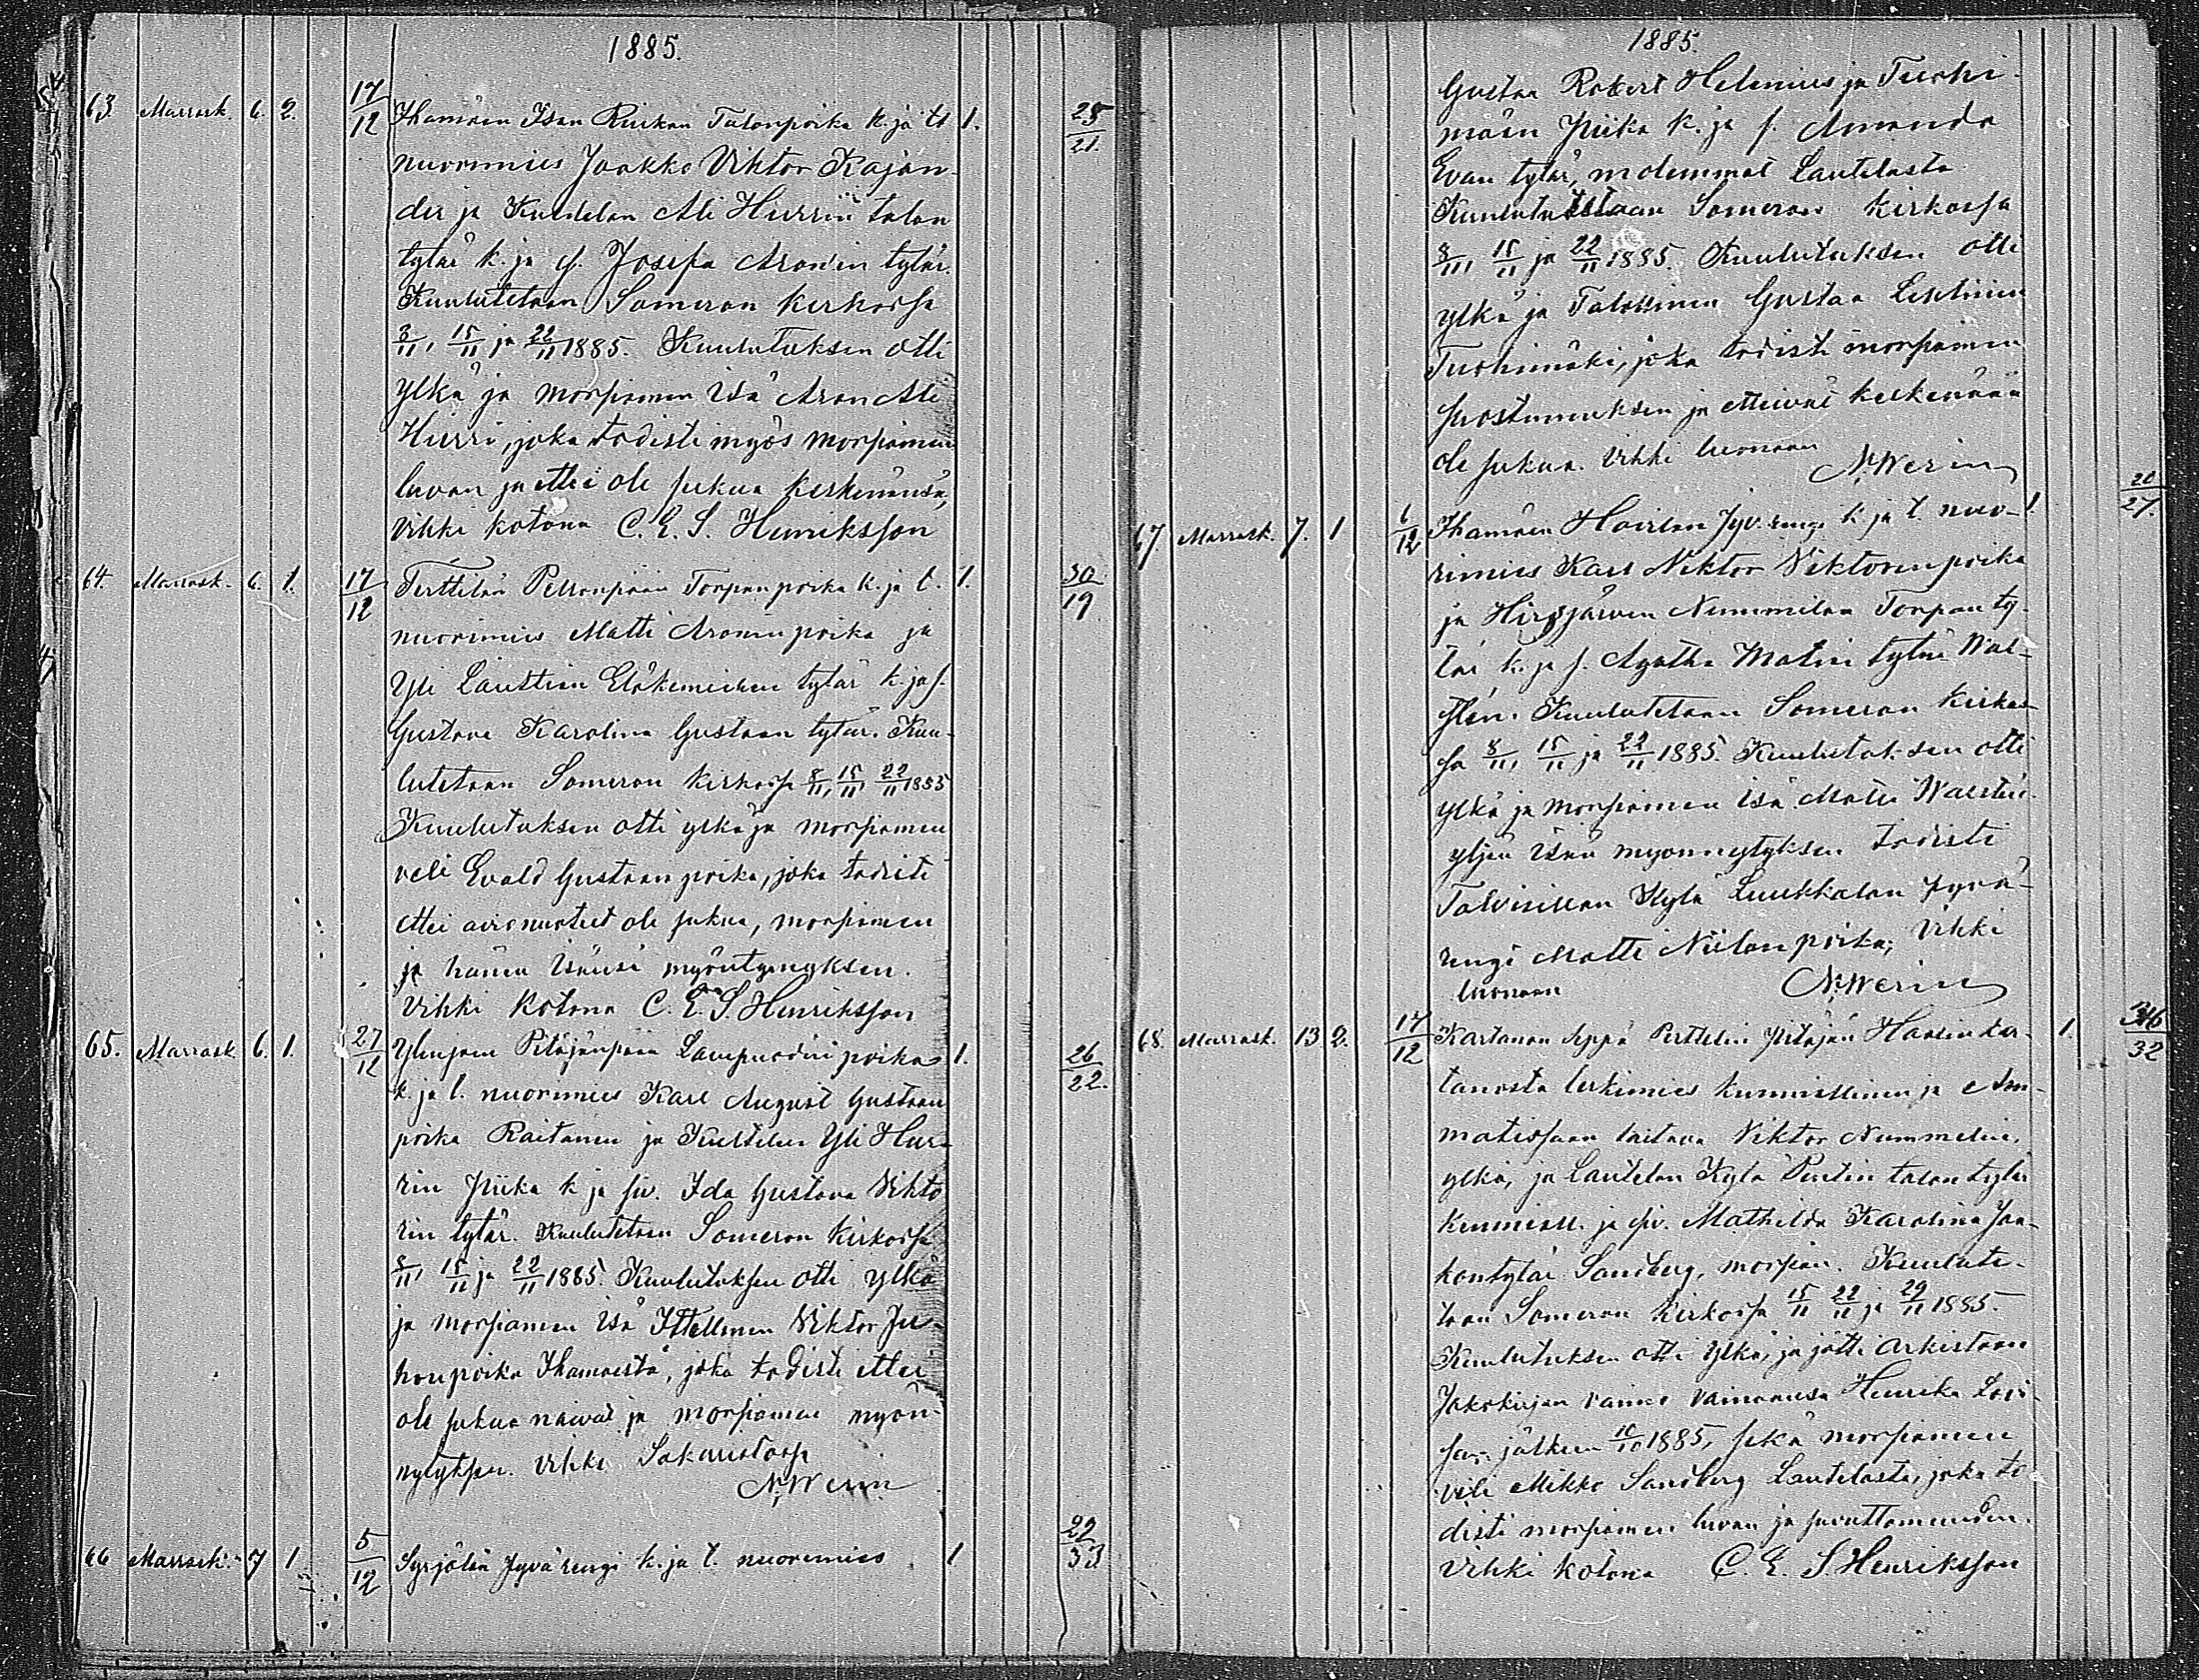 1885.
63. Marrask. 6. 2. 17/12 Ihamäen Isan Talonpoika k. ja t. 1. 25/21
nuorimies Jaakko Viktor Kajan-
der ja Kultelan Ali Hurrin talon
tytär k. ja s. Josefa Aronin tytär.
Kuulutetaan Someron kirkossa
8/11, 15/11 ja 22/11 1885. Kuulutuksen otti
ylkä ja morsiamen isä Aron Ali
Hurri, joka todisti myös morsiamen
luvan ja ettei ole sukua keskenänsä,
Vihki kotona C. E. S. Henriksson
64. Marrask. 6. 1. 17/12 Terttilän Torpanpoika k. ja t. 1. 30/19
nuorimies Matti Aronin poika ja
Yli Laustian tytär k. ja s.
Gustava Karolina Gustaan tytär. Kuu-
lutetaan Someron kirkossa 8/11, 15/11, 22/11 1885
Kuulutuksen otti ylkä ja morsiamen
veli Evald Gustaan poika, joka todisti
ettei ole sukua, morsiamen
ja hänen isänsä myöntymyksen.
Vihki kotona C. E. S. Henriksson
65. Marrask. 6. 1. 27/12 Ylenjoen Pitäjänpään Lampuodin poika 1. 26/22.
k. ja l. nuorimies Karl August Gustaan
poika Raitanen ja Kultelan Yli Hur-
rin piika k ja siv. Ida Gustava Vikto
rin tytär. Kuulutetaan Someron kirkossa
8/11, 15/11 ja 22/11 1885. Kuulutuksen otti ylkä
ja morsiamen isä Itsellinen Viktor Ju-
honpoika Ihamaesta, joka todisti ettei
ole sukua naivat ja morsiamen myön-
nytyksen. Vihki Sakaristossa
N. Werin
66 Marrask. 7 1. 5/12 Syrjälän Jyvä rengi k. ja t. nuorimies 1 29/33
1885.
Gustaa Robert Helenius ja Tuohi-
mäen piika k. ja s. Amanda
Evan tytär, molemmat Lautelasta
Kuulutetaan Someron kirkossa
8/11, 15/11 ja 22/11 1885. Kuulutuksen otti
ylkä ja Talollinen Gustaa
Tuohimäki, joka todisti morsiamen
suostumuksen ja etteivät keskenään
ole sukua. Vihki luonaan
N. Werin
67 Marrask. 7. 1 6/12 Ihamäen Jyv. rengi k ja t. nuo- 1. 20/27.
rimies Karl Viktor Viktorin poika
ja Hirsjärven Nummilan Torpan ty-
tär k. ja s. Agatha Matin tytär Wal-
stén. Kuulutetaan Someron kirkos-
sa 8/11, 15/11 ja 22/11 1885. Kuulutuksen otti
ylkä ja morsiamen isä Matti Walstén
yljän isän myönnytyksen todisti
Talvisillan Kylä Luukkalan Jyvä-
rengi Matti Niilon poika; Vihki
luonaan N. Werin
68. Marrask. 13 2. 17/12 Kartanon seppä Perttelin Pitäjän kar- 1. 36/32
tanosta leskimies kunniallinen ja Am-
matissaan taitava Viktor Nummelin,
ylkä, ja Lautelan Kylä Pentin talon tytär
kunniall. ja siv. Mathilda Karolina Jaa-
kontytär Sandberg, morsian. Kuulute-
taan Someron kirkossa 15/11 22/11 ja 29/11 1885.
Kuulutuksen otti ylkä, ja jätti arkistoon
Jakokirjan vaimo vainaansa Henrika Lovi-
san jälkeen 10/10 1885, sekä morsiamen
veli Mikko Sandberg Lautelasta, joka to
disti morsiamen luvan ja suvuttomuuden.
Vihki kotona C. E. S. Henriksson